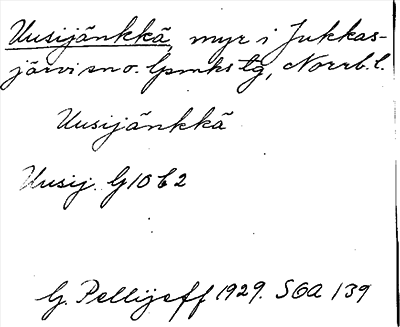 Uusijänkkä, myr i Jukkas-
järvi sn o. lpmks tg, Norrb. l.
Uusijänkkä
Uusij. G10 b2
G. Pellijeff 1929. SOA 139